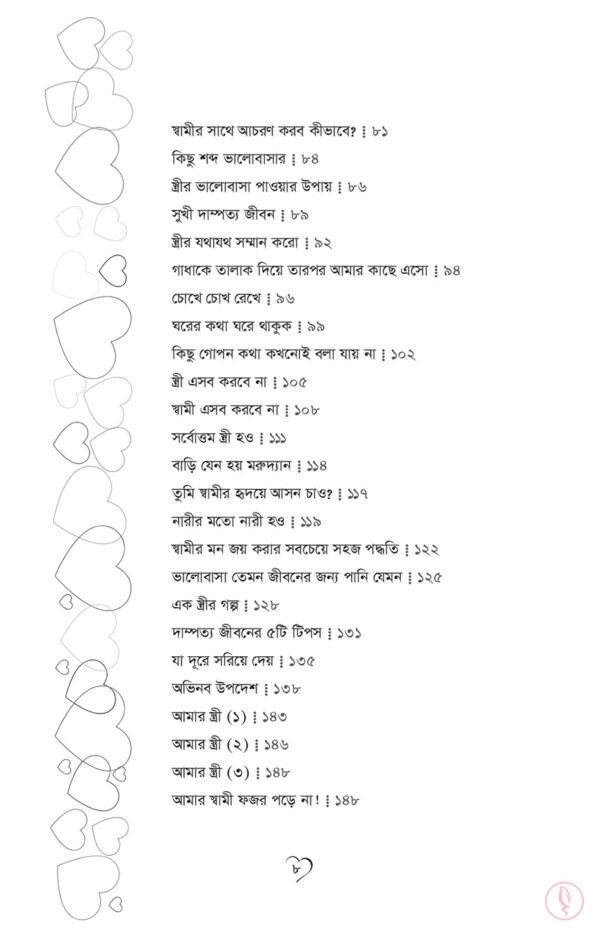 স্বামীর সাথে আচরণ করব কীভাবে? ⁞ ৮১
কিছু শব্দ ভালোবাসার ⁞ ৮৪
স্ত্রীর ভালোবাসা পাওয়ার উপায় ⁞ ৮৬
সুখী দাম্পত্য জীবন ⁞ ৮৯
স্ত্রীর যথাযথ সম্মান করো ⁞ ৯২
গাধাকে তালাক দিয়ে তারপর আমার কাছে এসো ⁞ ৯৪
চোখে চোখ রেখে ⁞ ৯৬
ঘরের কথা ঘরে থাকুক ⁞ ৯৯
কিছু গোপন কথা কখনোই বলা যায় না ⁞ ১০২
স্ত্রী এসব করবে না ⁞ ১০৫
স্বামী এসব করবে না ⁞ ১০৮
সর্বোত্তম স্ত্রী হও ⁞ ১১১
বাড়ি যেন হয় মরুদ্যান ⁞ ১১৪
তুমি স্বামীর হৃদয়ে আসন চাও? ⁞ ১১৭
নারীর মতো নারী হও ⁞ ১১৯
স্বামীর মন জয় করার সবচেয়ে সহজ পদ্ধতি ⁞ ১২২
ভালোবাসা তেমন জীবনের জন্য পানি যেমন ⁞ ১২৫
এক স্ত্রীর গল্প ⁞ ১২৮
দাম্পত্য জীবনের ৫টি টিপস ⁞ ১৩১
যা দূরে সরিয়ে দেয় ⁞ ১৩৫
অভিনব উপদেশ ⁞ ১৩৮
আমার স্ত্রী (১) ⁞ ১৪৩
আমার স্ত্রী (২) ⁞ ১৪৬
আমার স্ত্রী (৩) ⁞ ১৪৮
আমার স্বামী ফজর পড়ে না! ⁞ ১৪৮
৮